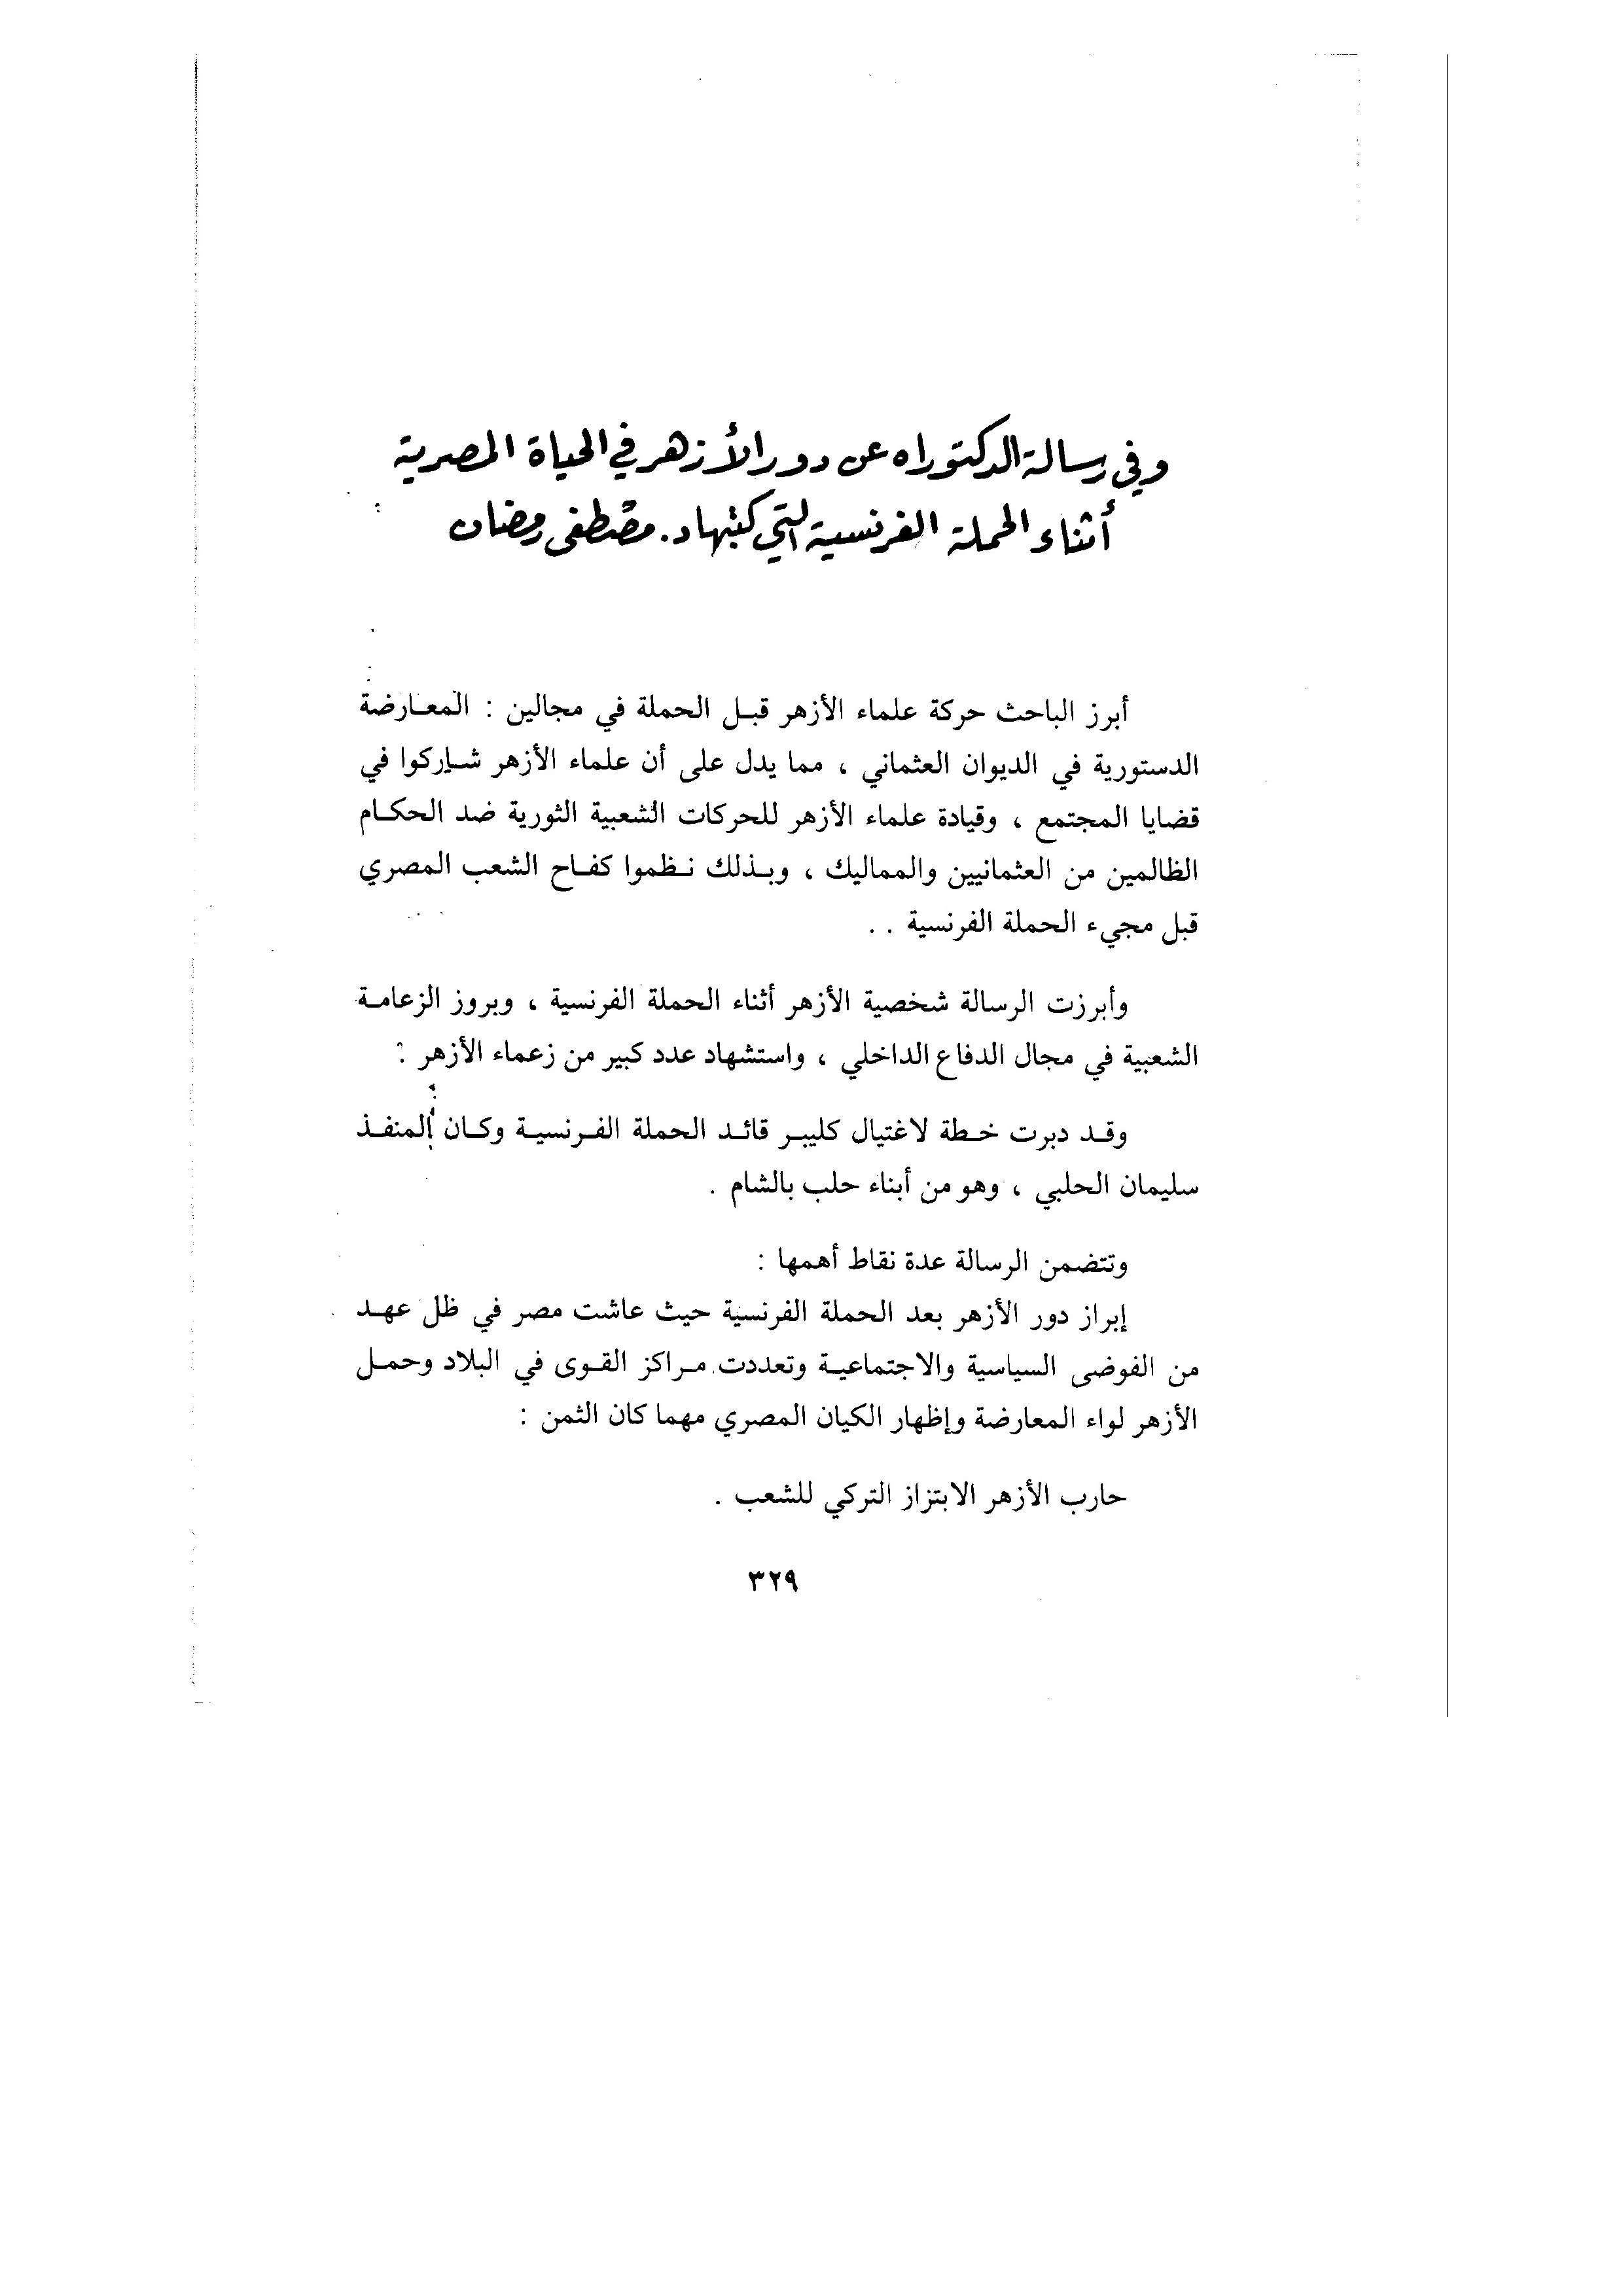 وفي رسالة الدكتوراه عن دور الأزهر في الحياة المصرية
أثناء الحملة الفرنسية التي كتبها د. مصطفى رمضان
أبرز الباحث حركة علماء الأزهر قبل الحملة في مجالين : المعارضة
الدستورية في الديوان العثماني ، مما يدل على أن علماء الأزهر شاركوا في
قضايا المجتمع ، وقيادة علماء الأزهر للحركات الشعبية الثورية ضد الحكام
الظالمين من العثمانيين والمماليك ، وبذلك نظموا كفاح الشعب المصري
قبل مجيء الحملة الفرنسية . .
وأبرزت الرسالة شخصية الأزهر أثناء الحملة الفرنسية ، وبروز الزعامة
الشعبية في مجال الدفاع الداخلي ، واستشهاد عدد كبير من زعماء الأزهر :
وقد دبرت خطة لاغتيال كليبر قائد الحملة الفرنسية وكان المنفذ
سليمان الحلبي ، وهو من أبناء حلب بالشام .
وتتضمن الرسالة عدة نقاط أهمها :
إبراز دور الأزهر بعد الحملة الفرنسية حيث عاشت مصر في ظل عهد
من الفوضى السياسية والاجتماعية وتعددت مراكز القوى في البلاد وحمل
الأزهر لواء المعارضة وإظهار الكيان المصري مهما كان الثمن :
حارب الأزهر الابتزاز التركي للشعب .
٣٢٩